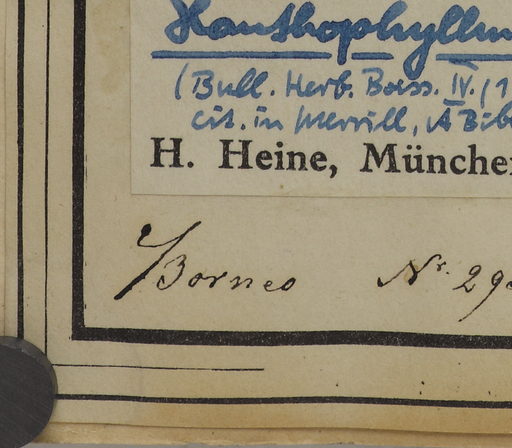 Xanthophyllum
(Bull. Herb. Boiss. IV. (1
cit. in Merrill, A Bib
H. Heine, München
Borneo Nr. 29